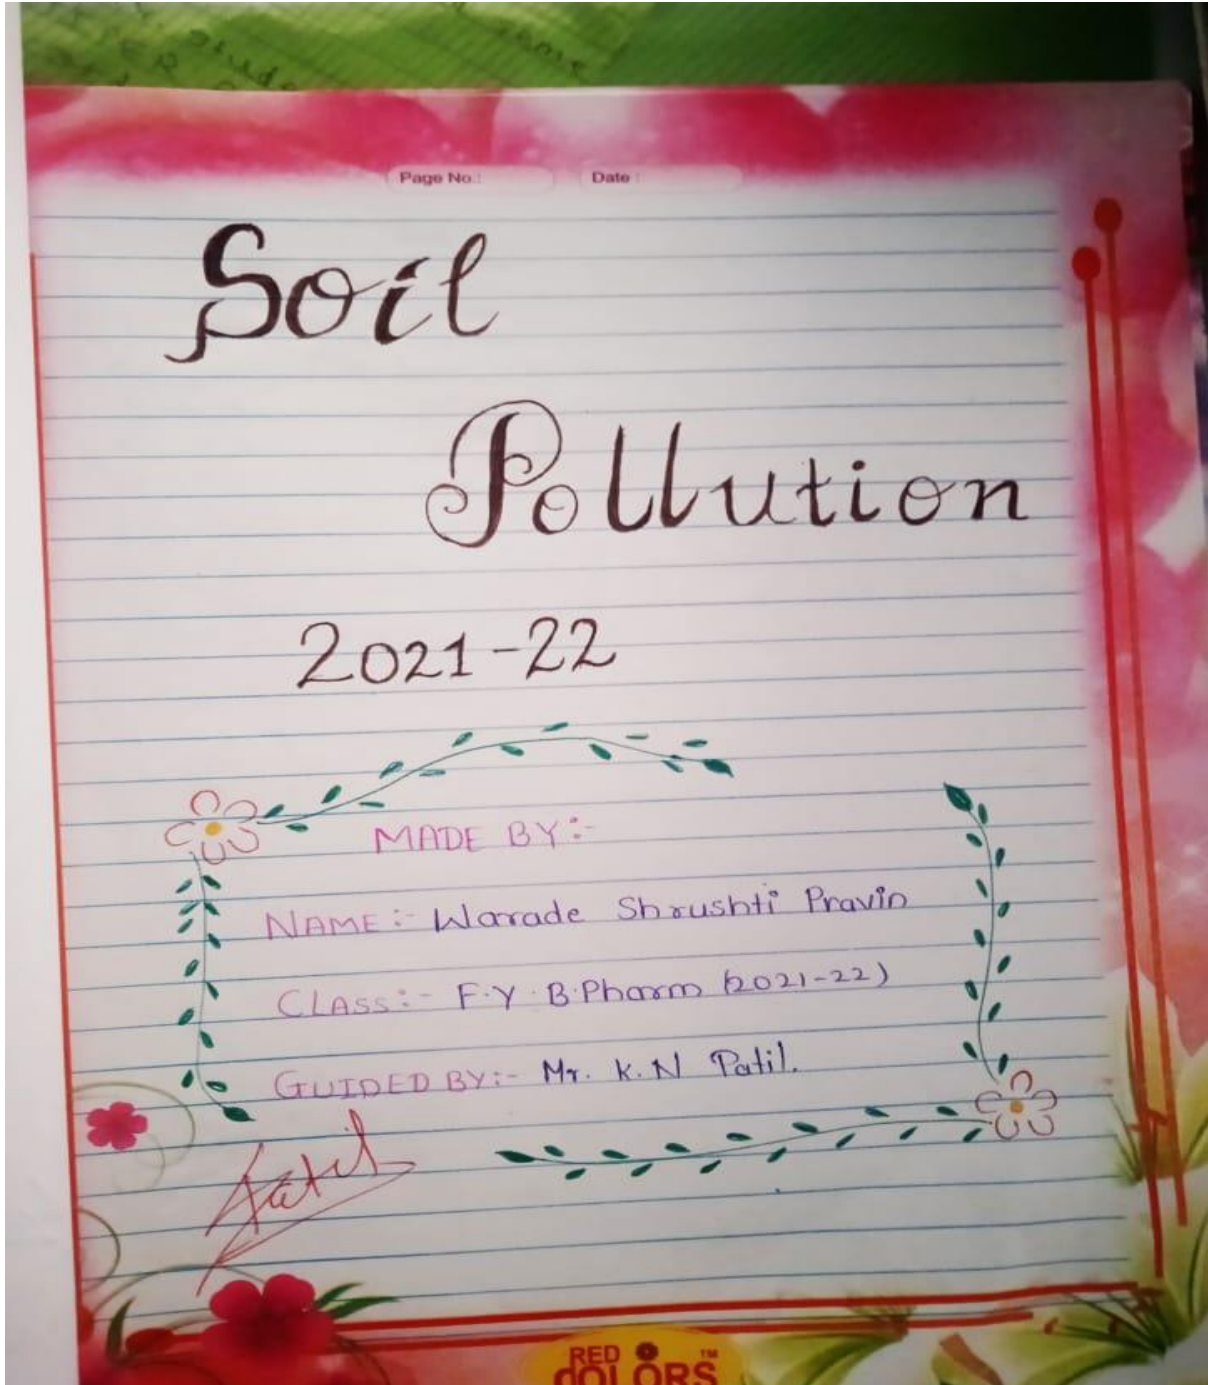 Page No.:
Date :
Soil
Pollution
2021-22
MADE BY:-
NAME:- Warade Shrushti Pravin
CLASS:- F.Y. B.Pharm (2021-22)
GUIDED BY:- Mr. K.N Patil.
RED
COLORS™